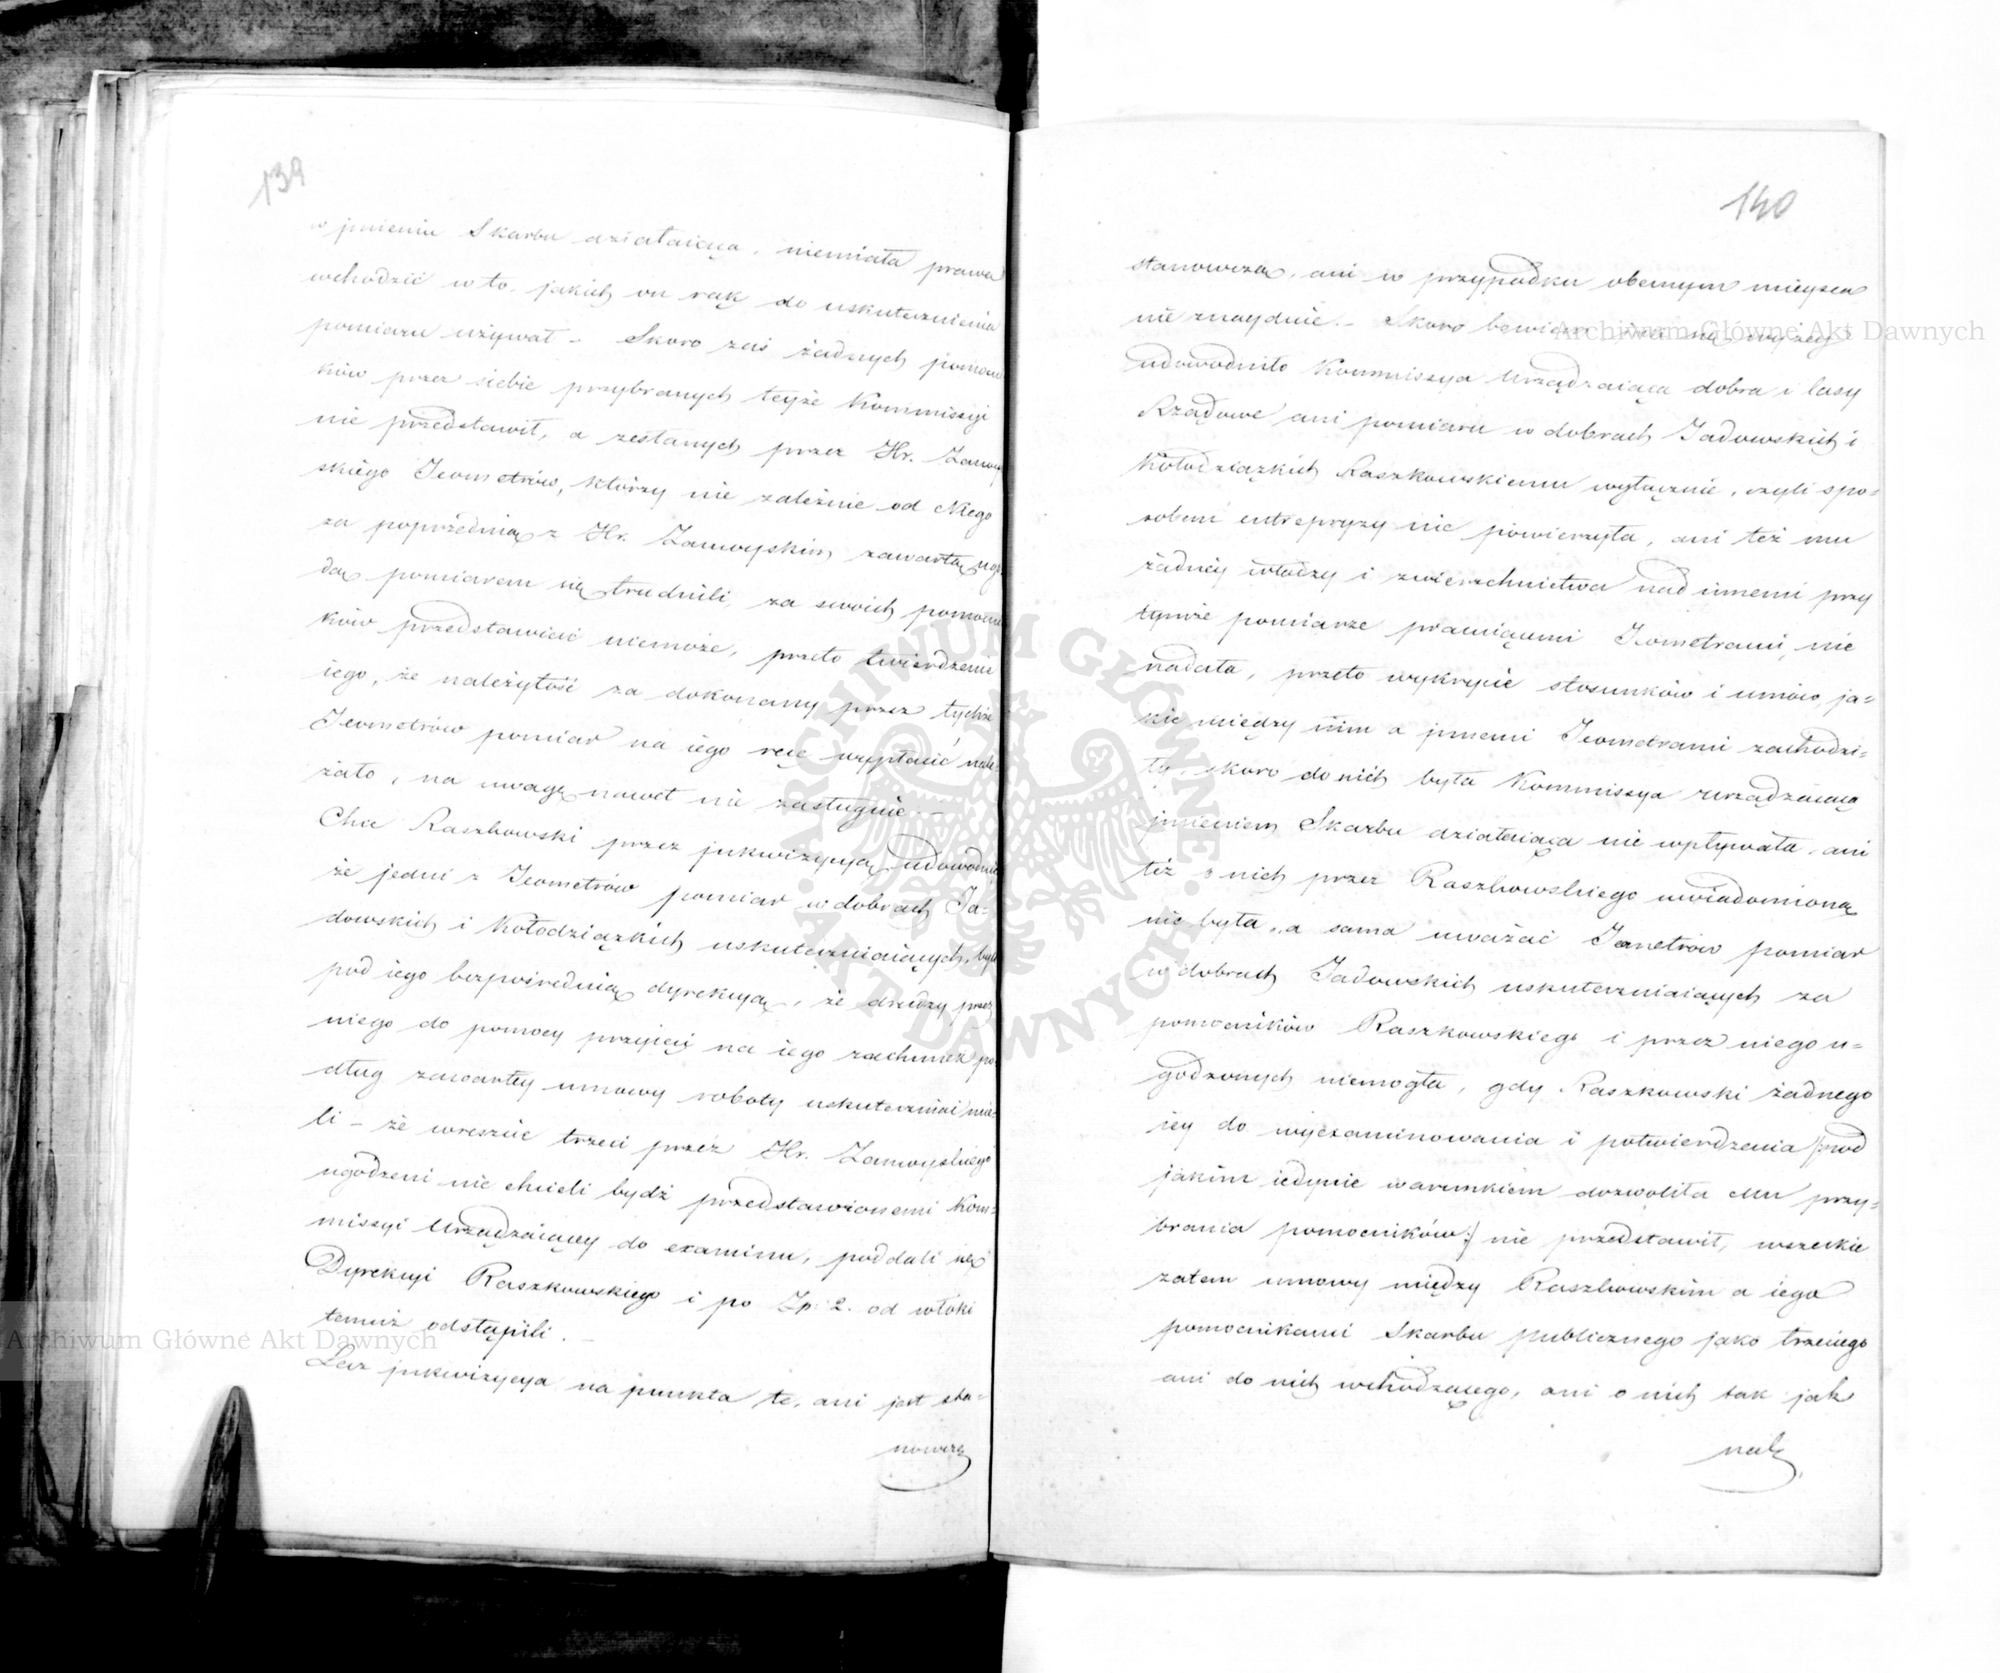 139
w jmieniu Skarbu działaiąca, niemiała prawa
wchodzić w to, jakich on rąk do uskutecznienia
pomiaru używał – Skoro zaś żadnych pomocni
ków przez siebie przybranych teyże Kommissyi
nie przedstawił, a zesłanych przez Hr. Zamoy
skiego Jeometrów, którzy nie zależnie od Niego
za poprzednią z Hr. Zamoyskim zawartą ugo
dą pomiarem się trudnili, za swoich pomocni
ków przedstawiać niemoże, przeto twierdzenie
iego, że należytość za dokonany przez tychże
Jeometrów pomiar na iego ręce wypłacić nale-
żało, na uwagę nawet nie zasługuie. –
Chce Raszkowski przez jnkwizycyą udowodnić
że jedni z Jeometrów pomiar w dobrach Ja-
dowskich i Kołodziązkich uskuteczniaiących, byli
pod iego bezpośrednią dyrekcyą, że drudzy przez
niego do pomocy przyięci na iego rachunek po-
dług zawartey umowy roboty uskuteczniać mie-
li – że wreszcie trzeci przez Hr. Zamoyskiego
ugodzeni nie chcieli bydź przedstawionemi Kom-
missyi Urządzaiącey do examinu, poddali się
Dyrekcyi Raszkowskiego i po Zp: 2. od włóki
temuż odstąpili. –
Lecz jnkwizycya na punkta te, ani jest sta-
nowczą
140
stanowczą, ani w przypadku obecnym mieysca
nie znaydzie. – Skoro bowiem
udowodniło Kommissya Urządzaiąca dobra i lasy
Rządowe ani pomiaru w dobrach Jadowskich i
Kołodziązkich Raszkowskiemu wyłącznie, czyli spo-
sobem entrepryzy nie powierzyła, ani też mu
żadney władzy i zwierzchnictwa nad innemi przy
tymże pomiarze pracuiącemi Jeometrami, nie
nadała, przeto wykrycie stosunków i umów, ja-
kie między nim a jnnemi Jeometrami zachodzi-
ły, skoro do nich była Kommissya urządzaiąca
jmieniem Skarbu działaiąca nie wpływała, ani
też o nich przez Raszkowskiego uwiadomioną
nie była, a sama uważać Jemetrów pomiar
w dobrach Jadowskich uskuteczniaiących za
pomocników Raszkowskiego i przez niego u-
godzonych niemogła, gdy Raszkowski żadnego
iey do wyexaminowania i potwierdzenia /:pod
jakim iedynie warunkiem dozwoliła Mu przy-
brania pomocników:/ nie przedstawił, wszelkie
zatem umowy między Raszkowskim a iego
pomocnikami Skarbu publicznego jako trzeciego
ani do nich wchodzącego, ani o nich tak jak
Archiwum Główne Akt Dawnych
Archiwum Główne Akt Dawnych
ARCHIWUM GŁÓWNE AKT DAWNYCH